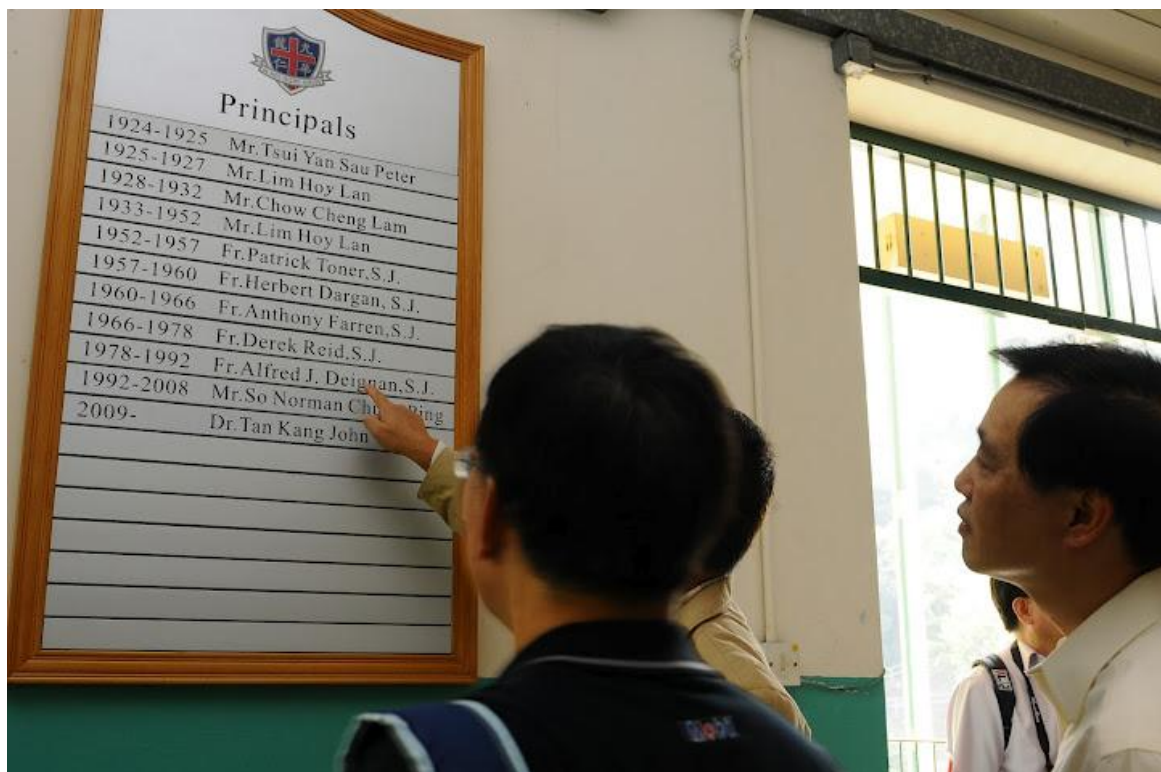 龍九
仁華
Principals
1924-1925 Mr.Tsui Yan Sau Peter
1925-1927 Mr.Lim Hoy Lan
1928-1932 Mr.Chow Cheng Lam
1933-1952 Mr.Lim Hoy Lan
1952-1957 Fr.Patrick Toner,S.J.
1957-1960 Fr.Herbert Dargan, S.J.
1960-1966 Fr.Anthony Farren,S.J.
1966-1978 Fr.Derek Reid,S.J.
1978-1992 Fr.Alfred J. Deignan,S.J.
1992-2008 Mr.So Norman
2009- Dr.Tan Kang John
Mobil